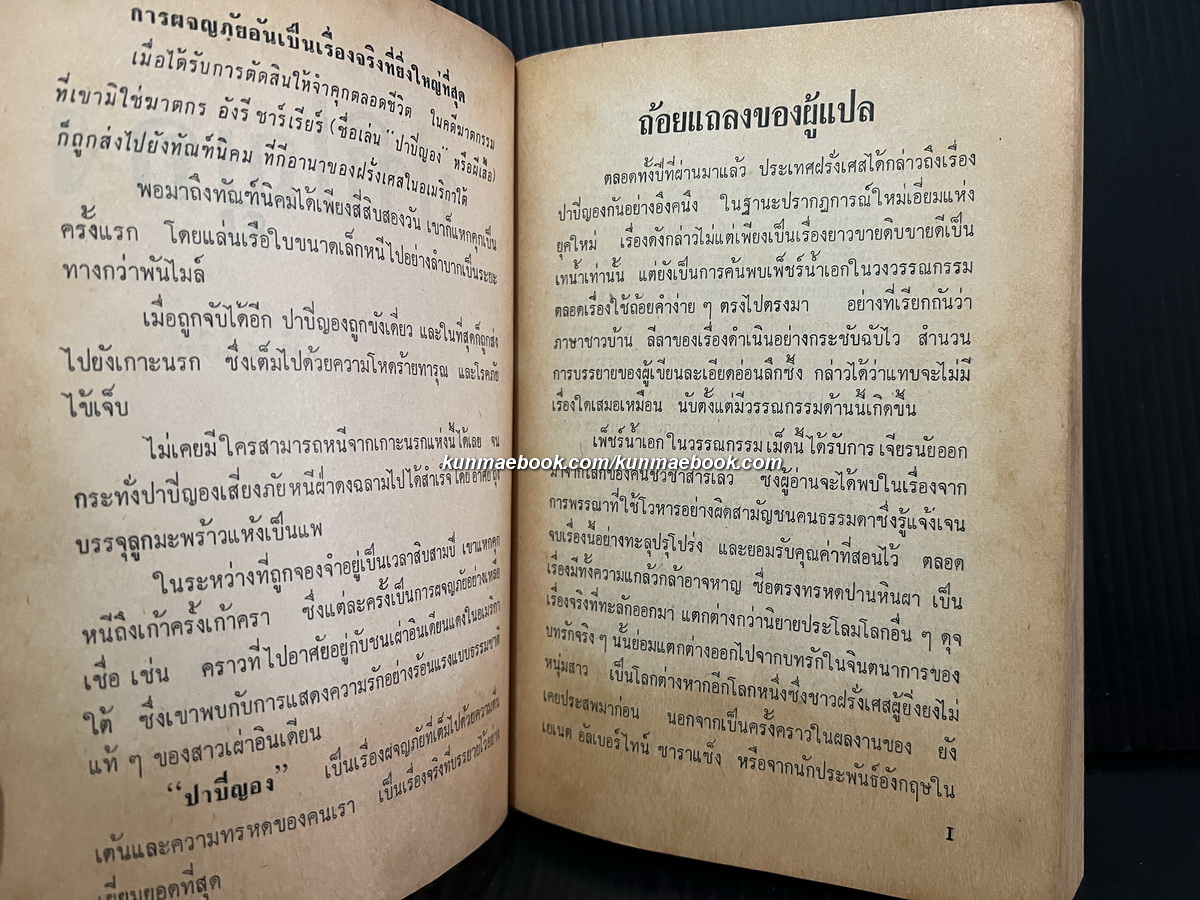 การผจญภัยอันเป็นเรื่องจริงที่ยิ่งใหญ่ที่สุด
เมื่อได้รับการตัดสินให้จำคุกตลอดชีวิต ในคดีฆาตกรรม
ที่เขามิใช่ฆาตกร อังรี ชาร์เรียร์ (ชื่อเล่น “ปาปิญอง” หรือผีเสื้อ)
ก็ถูกส่งไปยังทัณฑ์นิคม ที่กีอานาของฝรั่งเศสในอเมริกาใต้
พอมาถึงทัณฑ์นิคมได้เพียงสี่สิบสองวัน เขาก็แหกคุกเป็น
ครั้งแรก โดยแล่นเรือใบขนาดเล็กหนีไปอย่างลำบากเป็นระยะ
ทางกว่าพันไมล์
เมื่อถูกจับได้อีก ปาปิญองถูกขังเดี่ยว และในที่สุดก็ถูกส่ง
ไปยังเกาะนรก ซึ่งเต็มไปด้วยความโหดร้ายทารุณ และโรคภัย
ไข้เจ็บ
ไม่เคยมีใครสามารถหนีจากเกาะนรกแห่งนี้ได้เลย จน
กระทั่งปาปิญองเสี่ยงภัยหนีฝ่าดงฉลามไปได้สำเร็จ โดยอาศัยถุง
บรรจุลูกมะพร้าวแห้งเป็นแพ
ในระหว่างที่ถูกจองจำอยู่เป็นเวลาสิบสามปี เขาแหกคุก
หนีถึงเก้าครั้งเก้าครา ซึ่งแต่ละครั้งเป็นการผจญภัยอย่างเหลือ
เชื่อ เช่น คราวที่ไปอาศัยอยู่กับชนเผ่าอินเดียนแดงในอเมริกา
ใต้ ซึ่งเขาพบกับการแสดงความรักอย่างร้อนแรงแบบธรรมชาติ
แท้ ๆ ของสาวเผ่าอินเดียน
“ปาปิญอง” เป็นเรื่องผจญภัยที่เต็มไปด้วยความตื่น
เต้นและความทรหดของคนเรา เป็นเรื่องจริงที่บรรยายไว้อย่าง
เยี่ยมยอดที่สุด
ถ้อยแถลงของผู้แปล
ตลอดทั้งปีที่ผ่านมาแล้ว ประเทศฝรั่งเศสได้กล่าวถึงเรื่อง
ปาปิญองกันอย่างอึงคนึง ในฐานะปรากฏการณ์ใหม่เอี่ยมแห่ง
ยุคใหม่ เรื่องดังกล่าวไม่แต่เพียงเป็นเรื่องยาวขายดิบขายดีเป็น
เทน้ำเท่านั้น แต่ยังเป็นการค้นพบเพ็ชร์น้ำเอกในวงวรรณกรรม
ตลอดเรื่องใช้ถ้อยคำง่าย ๆ ตรงไปตรงมา อย่างที่เรียกกันว่า
ภาษาชาวบ้าน ลีลาของเรื่องดำเนินอย่างกระชับฉับไว สำนวน
การบรรยายของผู้เขียนละเอียดอ่อนลึกซึ้ง กล่าวได้ว่าแทบจะไม่มี
เรื่องใดเสมอเหมือน นับตั้งแต่มีวรรณกรรมด้านนี้เกิดขึ้น
เพ็ชร์น้ำเอกในวรรณกรรมเม็ดนี้ได้รับการเจียรนัยออก
มาจากโลกของคนชั่วช้าสารเลว ซึ่งผู้อ่านจะได้พบในเรื่องจาก
การพรรณาที่ใช้โวหารอย่างผิดสามัญชนคนธรรมดาซึ่งรู้แจ้งเจน
จบเรื่องนี้อย่างทะลุปรุโปร่ง และยอมรับคุณค่าที่สอนไว้ ตลอด
เรื่องมีทั้งความแกล้วกล้าอาจหาญ ซื่อตรงทรหดปานหินผา เป็น
เรื่องจริงที่ทะลักออกมา แตกต่างกว่านิยายประโลมโลกอื่น ๆ ดุจ
บทรักจริง ๆ นั้นย่อมแตกต่างออกไปจากบทรักในจินตนาการของ
หนุ่มสาว เป็นโลกต่างหากอีกโลกหนึ่งซึ่งชาวฝรั่งเศสผู้ยิ่งยงไม่
เคยประสพมาก่อน นอกจากเป็นครั้งคราวในผลงานของ ยัง
เยเนต อัลเบอร์ไทน์ ซาราแซ็ง หรือจากนักประพันธ์อังกฤษใน
I
kunmaebook.com/kunmaebook.com